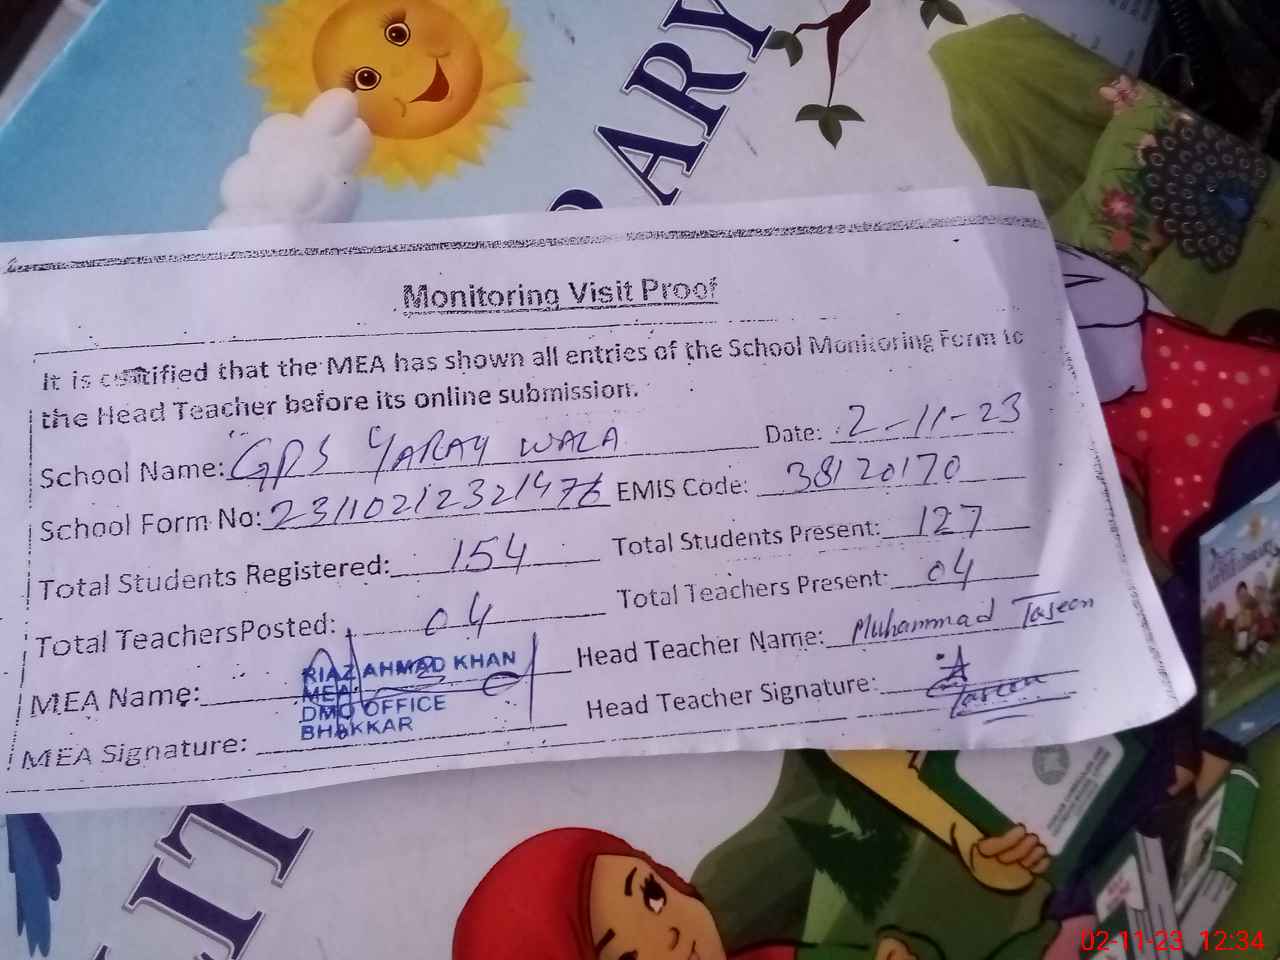 PARY
Monitoring Visit Proof
It is certified that the MEA has shown all entries of the School Monitoring Form to
the Head Teacher before its online submission.
School Name: GPS YARAY WALA Date: 2-11-23
School Form No: 23110212321476 EMIS Code: 38120170
Total Students Registered: 154 Total Students Present: 127
Total TeachersPosted: 04 Total Teachers Present: 04
MEA Name: RIAZ AHMAD KHAN Head Teacher Name: Muhammad Taseen
MEA
DMO OFFICE
BHAKKAR
MEA Signature: Head Teacher Signature: Taseen
LIT
02-11-23 12:34